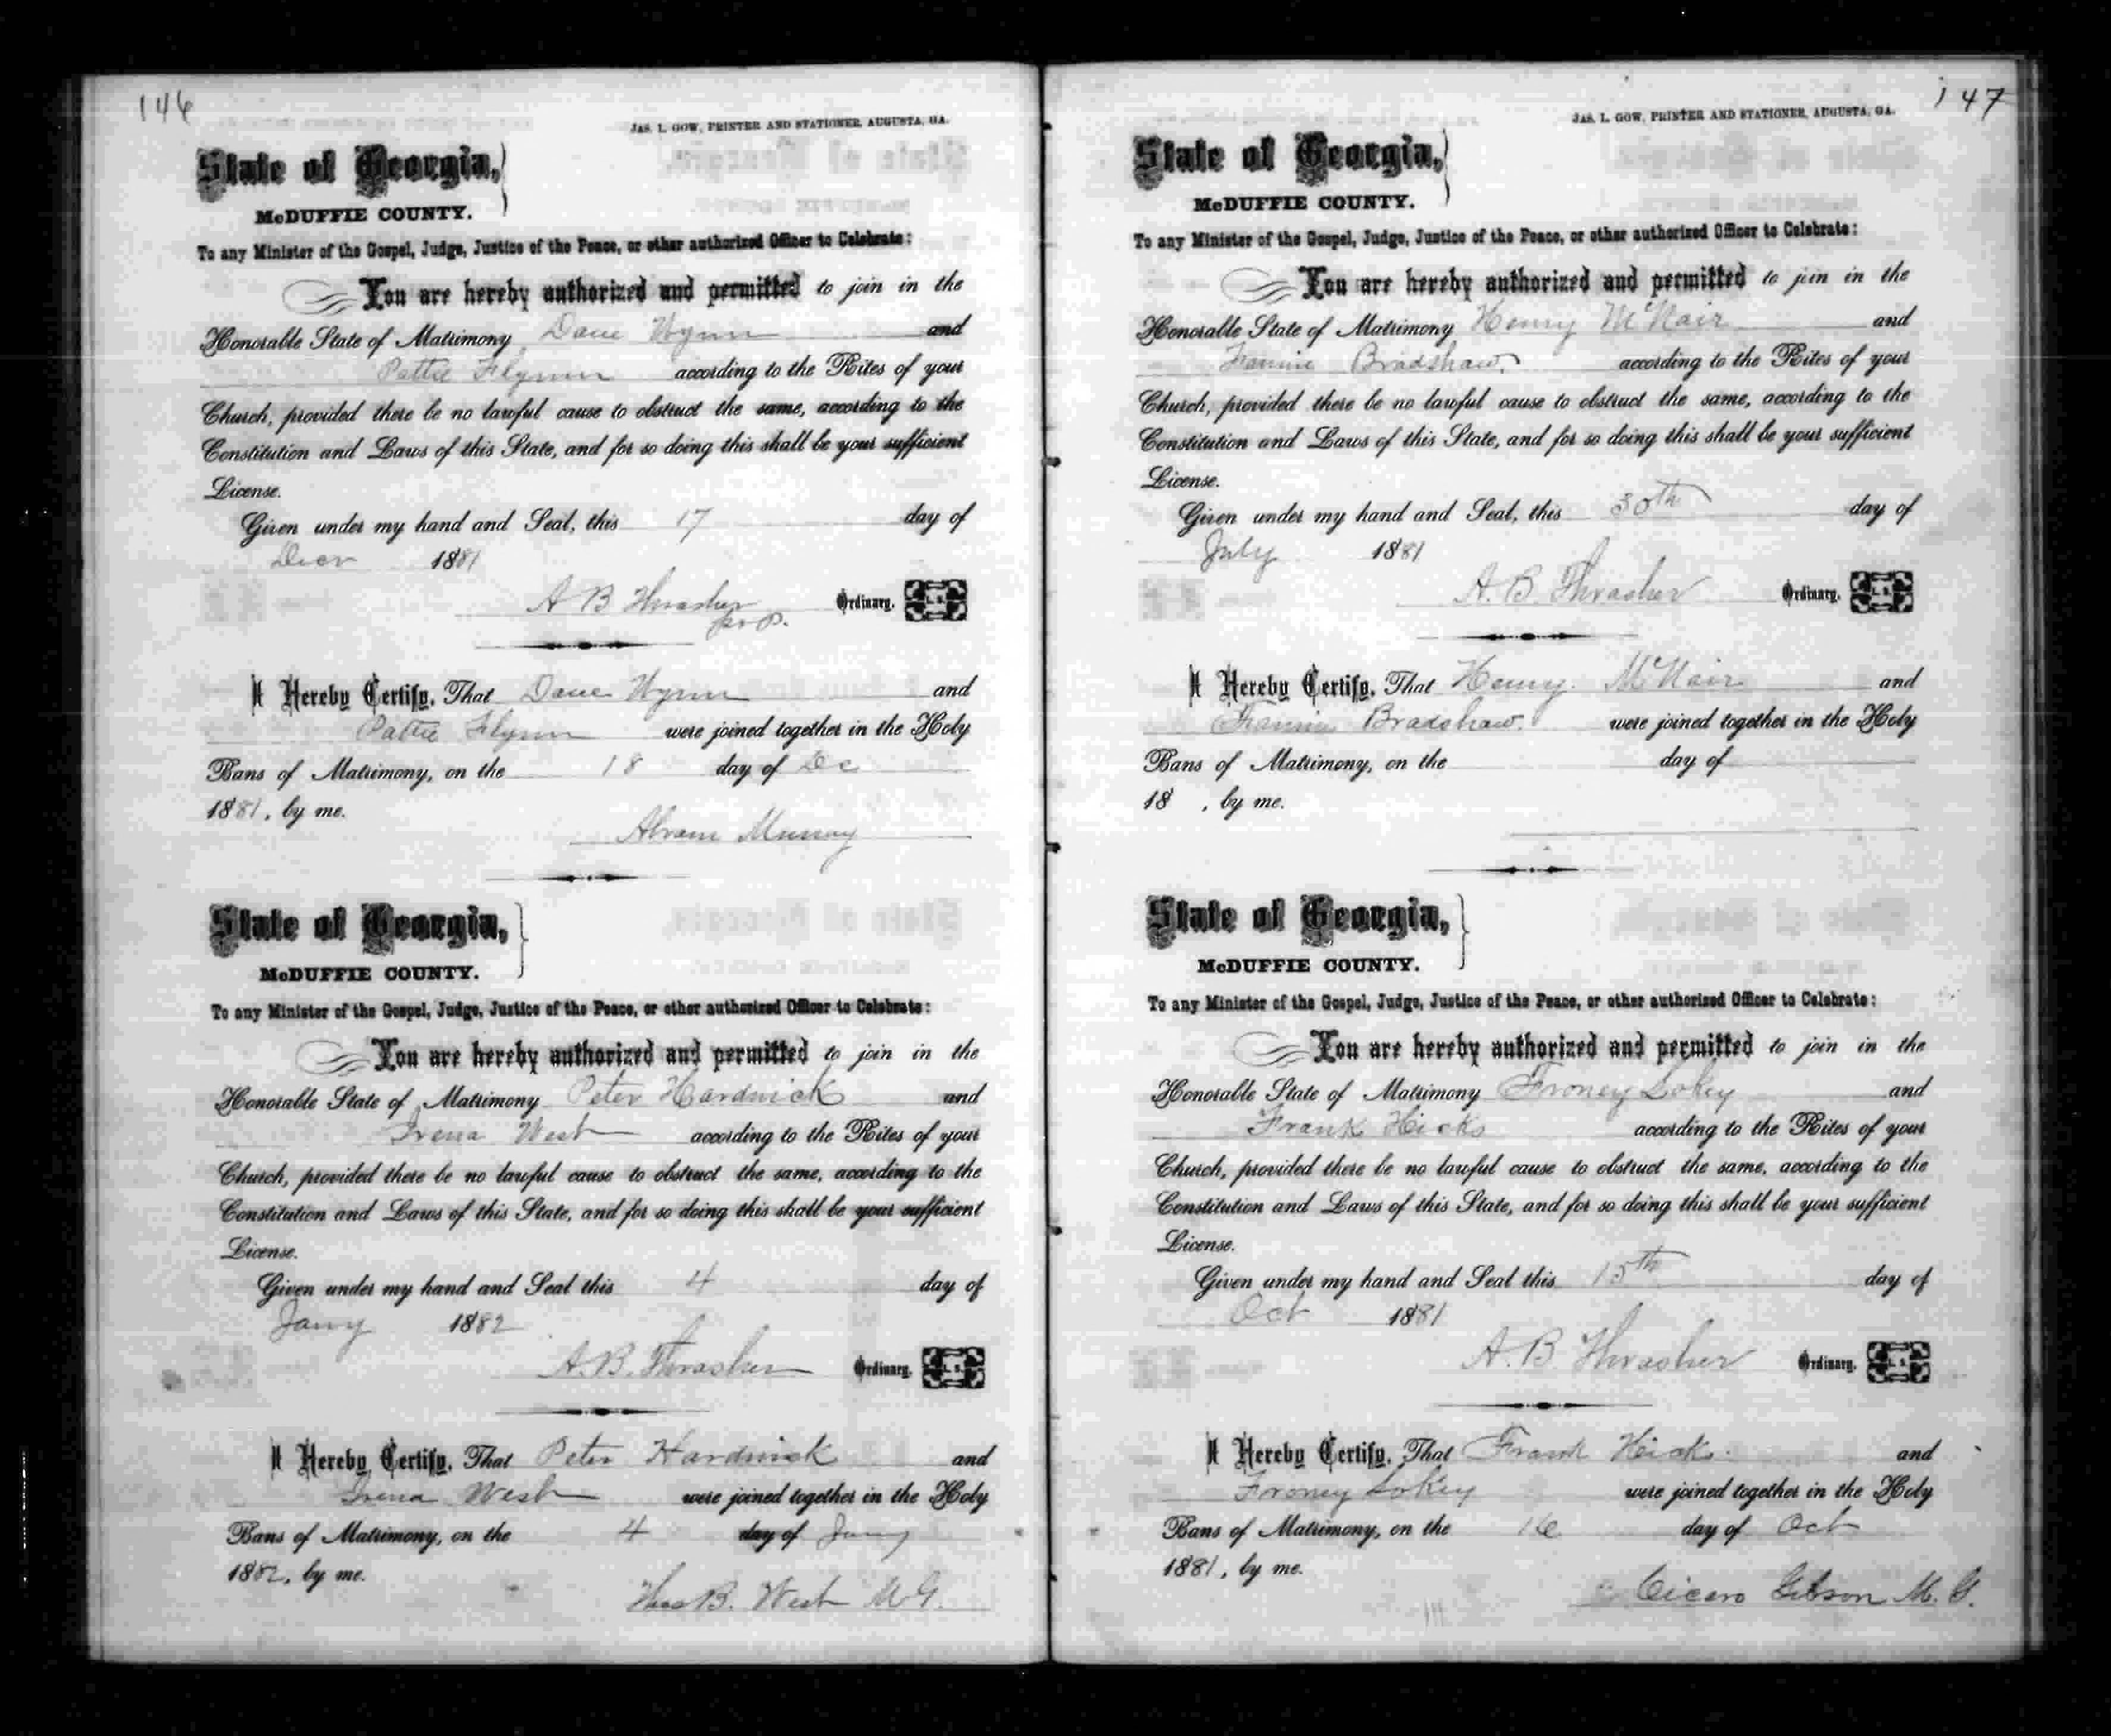 146
JAS. L. GOW, PRINTER AND STATIONER, AUGUSTA, GA.
State of Georgia,
McDUFFIE COUNTY.
To any Minister of the Gospel, Judge, Justice of the Peace, or other authorized Officer to Celebrate:
You are hereby authorized and permitted to join in the
Honorable State of Matrimony Dave Wynn and
Pattie Flynn according to the Rites of your
Church, provided there be no lawful cause to obstruct the same, according to the
Constitution and Laws of this State, and for so doing this shall be your sufficient
License.
Given under my hand and Seal, this 17 day of
Decr 1881
A B Thrasher Ordinary. L. S.
I Hereby Certify, That Dave Wynn and
Pattie Flynn were joined together in the Holy
Bans of Matrimony, on the 18 day of Dc
1881, by me.
Abram Murray
State of Georgia,
McDUFFIE COUNTY.
To any Minister of the Gospel, Judge, Justice of the Peace, or other authorized Officer to Celebrate:
You are hereby authorized and permitted to join in the
Honorable State of Matrimony Peter Hardwick and
Irena West according to the Rites of your
Church, provided there be no lawful cause to obstruct the same, according to the
Constitution and Laws of this State, and for so doing this shall be your sufficient
License.
Given under my hand and Seal this 4 day of
Jany 1882
A.B. Thrasher Ordinary. L. S.
I Hereby Certify, That Peter Hardwick and
Irena West were joined together in the Holy
Bans of Matrimony, on the 4 day of Jany
1882, by me.
Thos B. West M.G.
147
JAS. L. GOW, PRINTER AND STATIONER, AUGUSTA, GA.
State of Georgia,
McDUFFIE COUNTY.
To any Minister of the Gospel, Judge, Justice of the Peace, or other authorized Officer to Celebrate:
You are hereby authorized and permitted to join in the
Honorable State of Matrimony Henry McNair and
Fannie Bradshaw according to the Rites of your
Church, provided there be no lawful cause to obstruct the same, according to the
Constitution and Laws of this State, and for so doing this shall be your sufficient
License.
Given under my hand and Seal, this 30th day of
July 1881
A. B. Thrasher Ordinary. L. S.
I Hereby Certify, That Henry McNair and
Fannie Bradshaw. were joined together in the Holy
Bans of Matrimony, on the day of
18 , by me.
State of Georgia,
McDUFFIE COUNTY.
To any Minister of the Gospel, Judge, Justice of the Peace, or other authorized Officer to Celebrate:
You are hereby authorized and permitted to join in the
Honorable State of Matrimony Froney Lokey and
Frank Hicks according to the Rites of your
Church, provided there be no lawful cause to obstruct the same, according to the
Constitution and Laws of this State, and for so doing this shall be your sufficient
License.
Given under my hand and Seal this 15th day of
Oct 1881
A. B Thrasher Ordinary. L. S.
I Hereby Certify, That Frank Hicks and
Froney Lokey were joined together in the Holy
Bans of Matrimony, on the 16 day of Oct
1881, by me.
Cicero Gibson M. G.